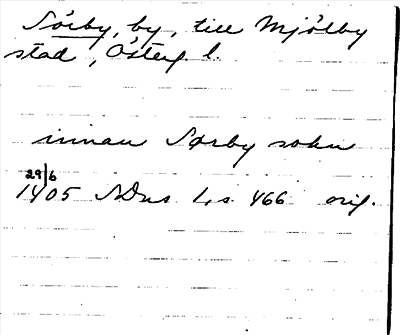 Sörby, by, till Mjölby
stad, Österg l.
innan Sørby sokn
29/6
1405 SDns 1, s. 466 orig.